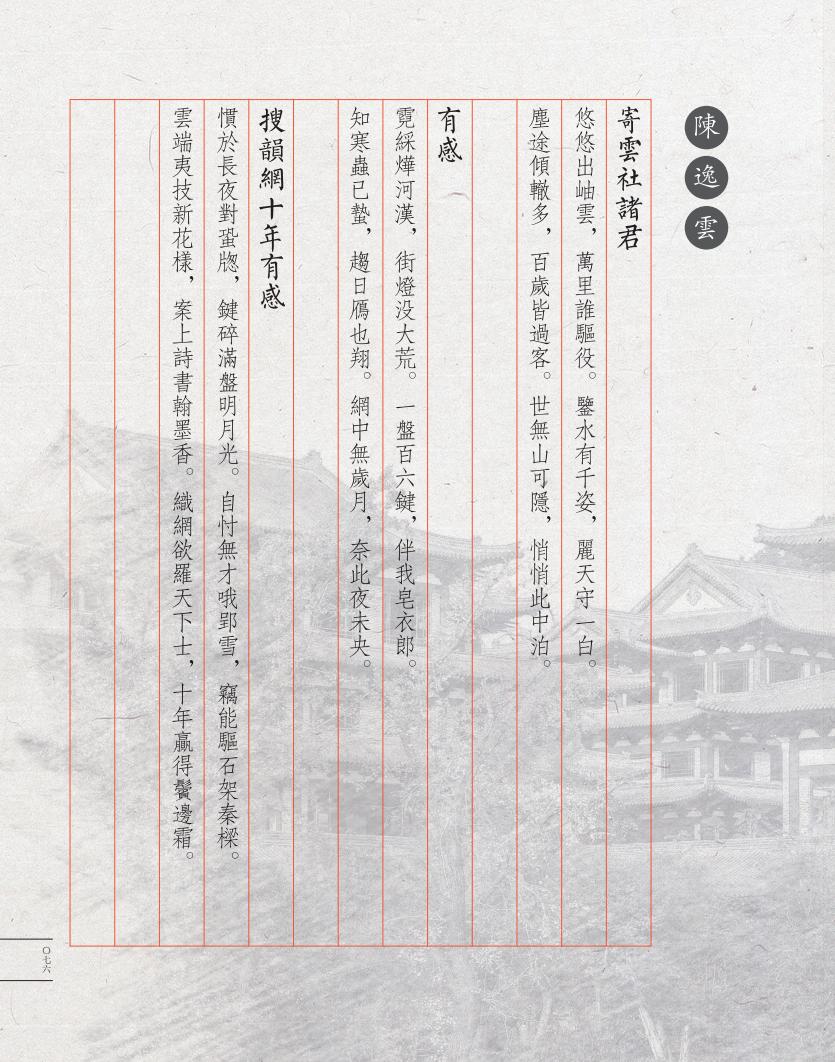 陳逸雲
寄雲社諸君
悠悠出岫雲，萬里誰驅役。鑒水有千姿，麗天守一白。
塵途傾轍多，百歲皆過客。世無山可隱，悄悄此中泊。
有感
霓綵燁河漢，街燈没大荒。一盤百六鍵，伴我皂衣郎。
知寒蟲已蟄，趨日鴈也翔。網中無歲月，奈此夜未央。
搜韻網十年有感
慣於長夜對蛩牕，鍵碎滿盤明月光。自忖無才哦郢雪，竊能驅石架秦樑。
雲端夷技新花樣，案上詩書翰墨香。織網欲羅天下士，十年贏得鬢邊霜。
〇七六